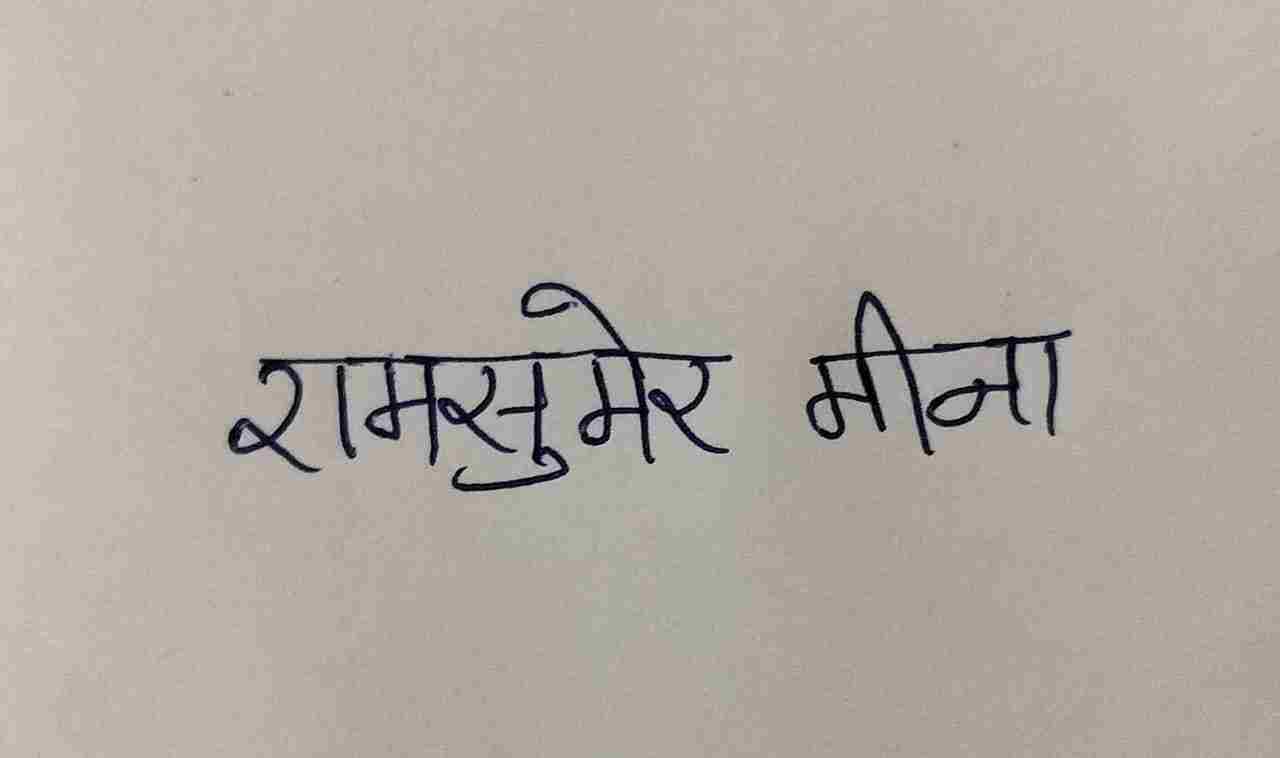 रामसुमेर मीना